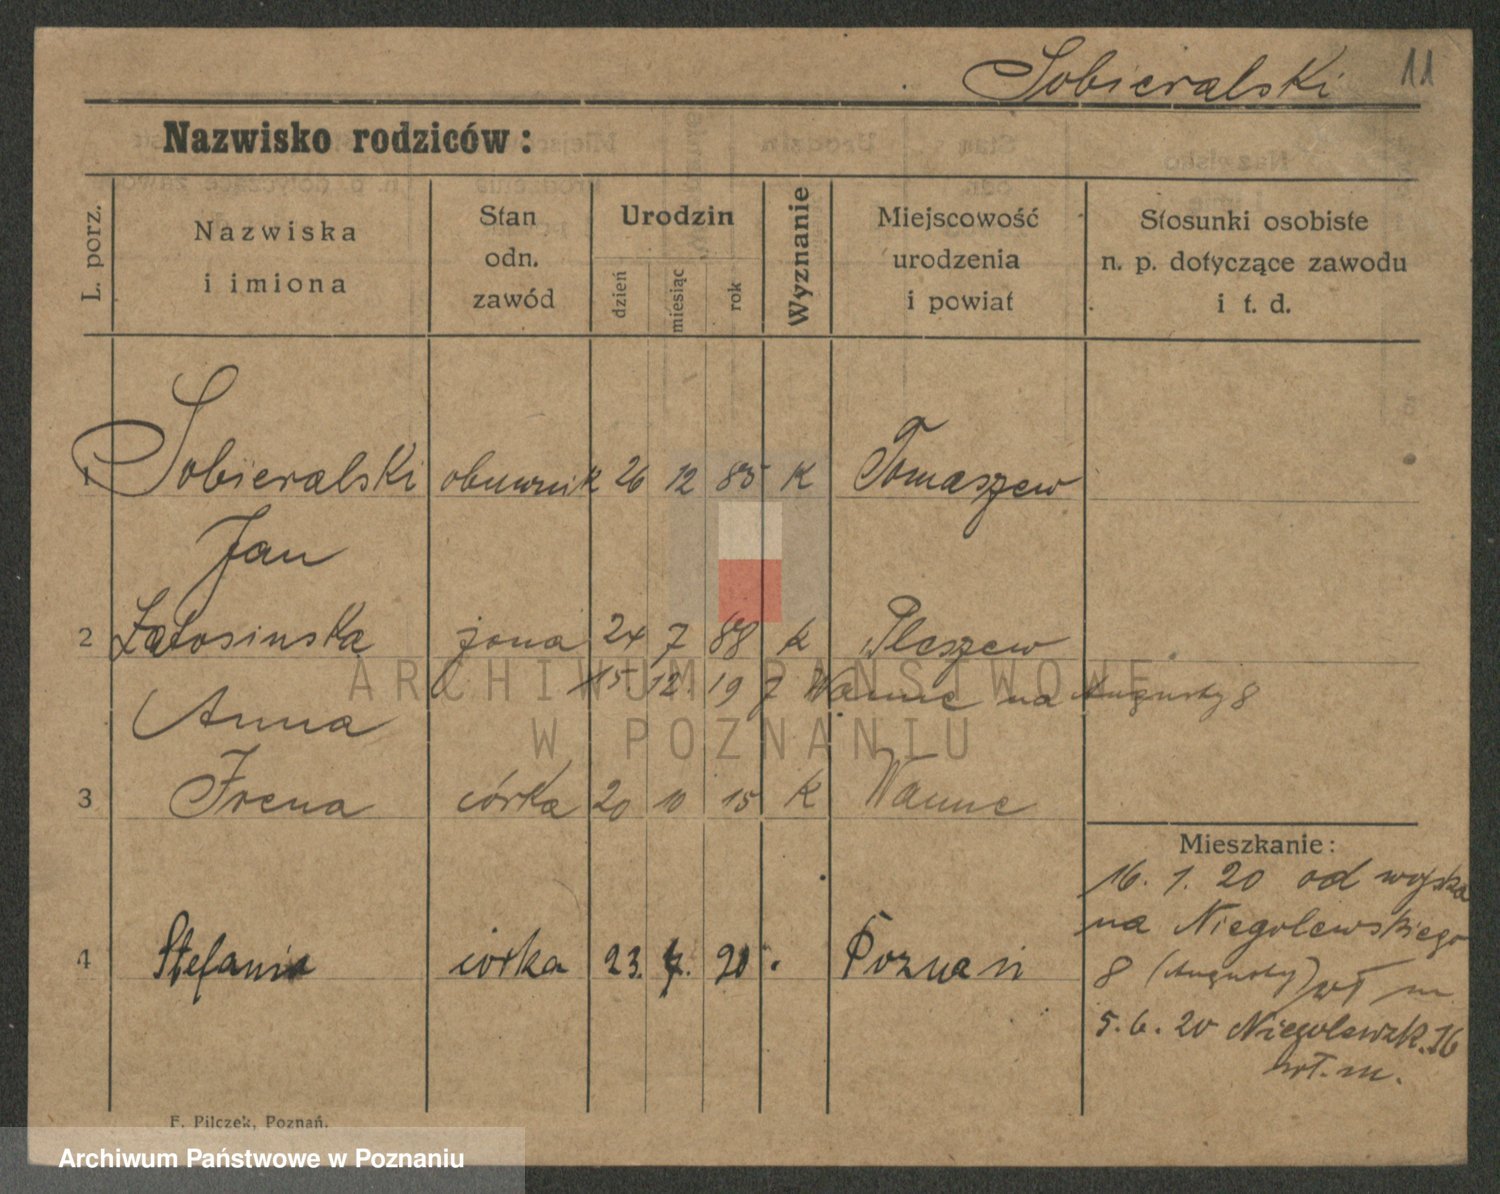 Sobieralski 11
Nazwisko rodziców:
L. porz.
Nazwiska
i imiona
Stan
odn.
zawód
Urodzin
dzień
miesiąc
rok
Wyznanie
Miejscowość
urodzenia
i powiat
Stosunki osobiste
n. p. dotyczące zawodu
i t. d.
1 Sobieralski obuwnik 26 12 85 K Tomaszew
Jan
2 Zatosinska żona 24 7 88 k Pleszew
15 12. 19 z Wanne na Augusty 8
Anna
3 Irena córka 20 10 15 K Wanne
Mieszkanie:
16. 1. 20 od wojska
na Niegolewskiego
8 (Augusty) wł m
4 Stefania córka 23. 7. 20. Poznań
5. 6. 20 Niegolewsk. 16
wł. m.
F. Pilczek, Poznań.
ARCHIWUM PAŃSTWOWE
W POZNANIU
Archiwum Państwowe w Poznaniu